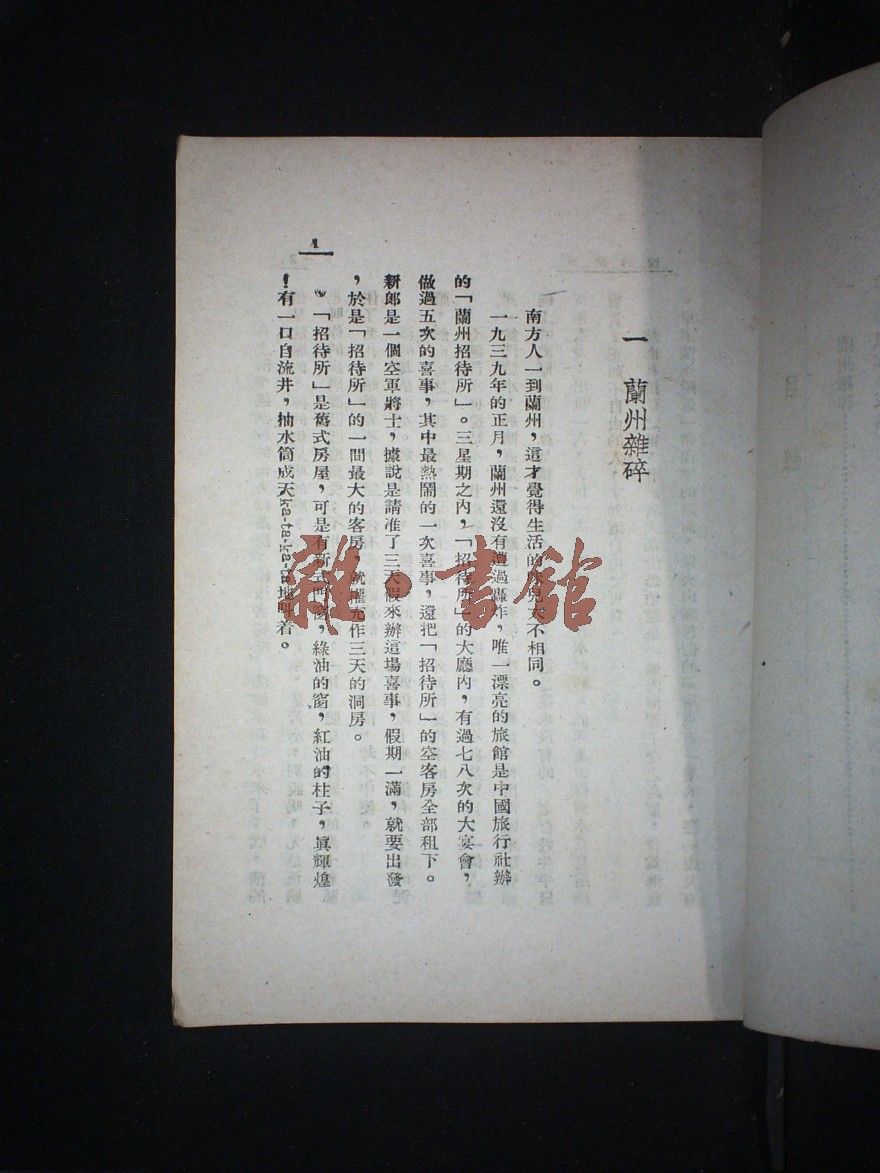 一 蘭州雜碎
南方人一到蘭州，這才覺得生活的味兒大不相同。
一九三九年的正月，蘭州還沒有遭過轟炸，唯一漂亮的旅館是中國旅行社辦
的「蘭州招待所」。三星期之內，「招待所」的大廳內，有過七八次的大宴會，
做過五次的喜事，其中最熱鬧的一次喜事，還把「招待所」的空客房全部租下。
新郎是一個空軍將士，據說是請准了三天假來辦這場喜事，假期一滿，就要出發
，於是「招待所」的一間最大的客房，就權充作三天的洞房。
「招待所」是舊式房屋，可是有新式門窗，綠油的窗，紅油的柱子，眞輝煌
！有一口自流井，抽水筒成天ka-ta-ka-ta地叫着。
1
雜·書館